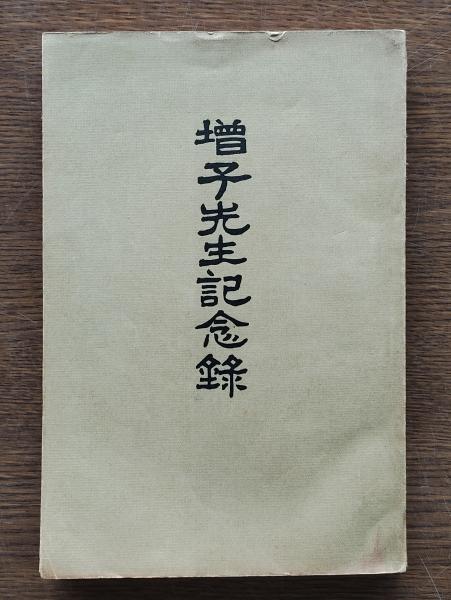 增子先生記念錄